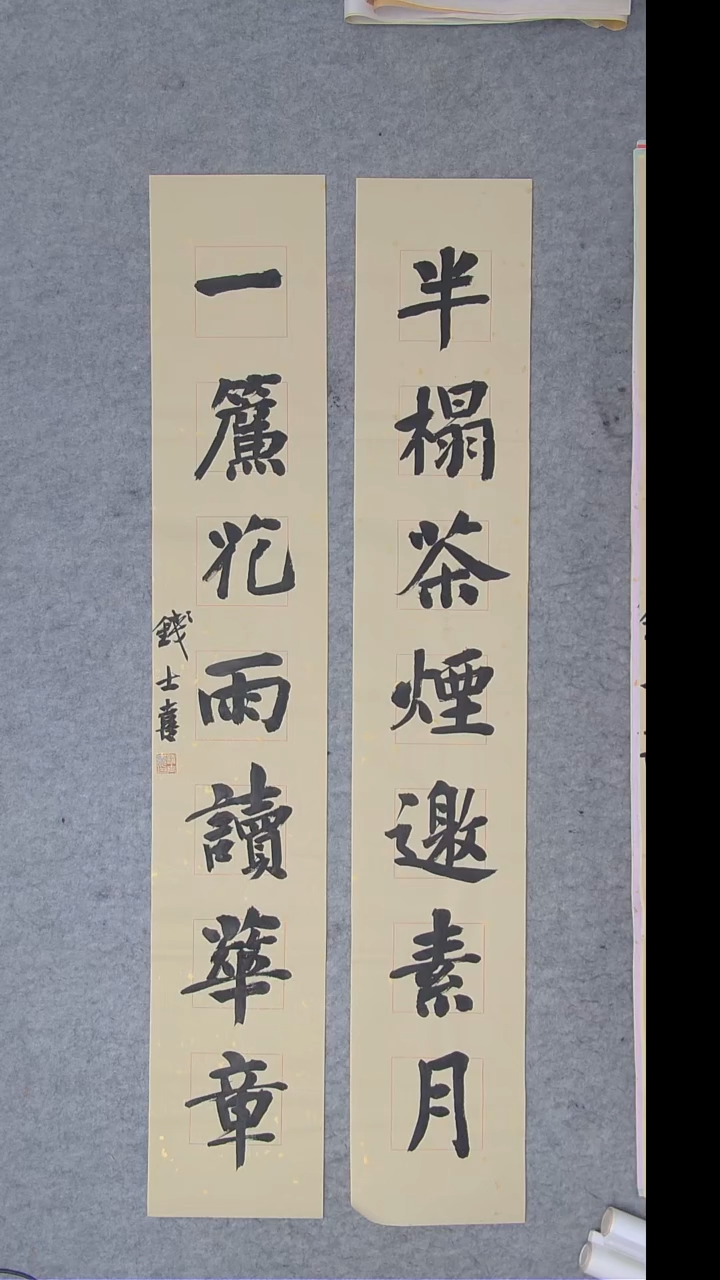 半榻茶煙邀素月
一簾花雨讀華章
錢士喜